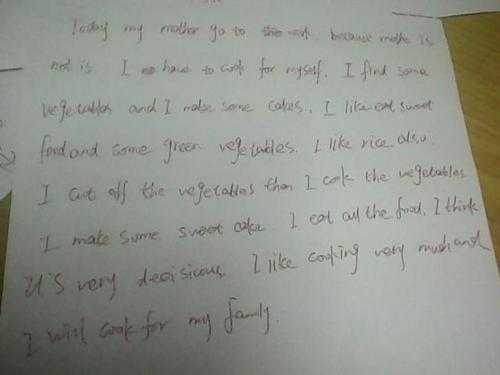 Today my mother go to the work, because mothe is
not is I have to cook for myself. I find some
vegetables and I make some cakes. I like eat sweet
food and some green vegetables. I like rice also
I cut off the vegetables than I cook the vegetables
I make some sweet cake I eat all the food. I think
it's very decisious. I like cooking very much and
I will cook for my family.